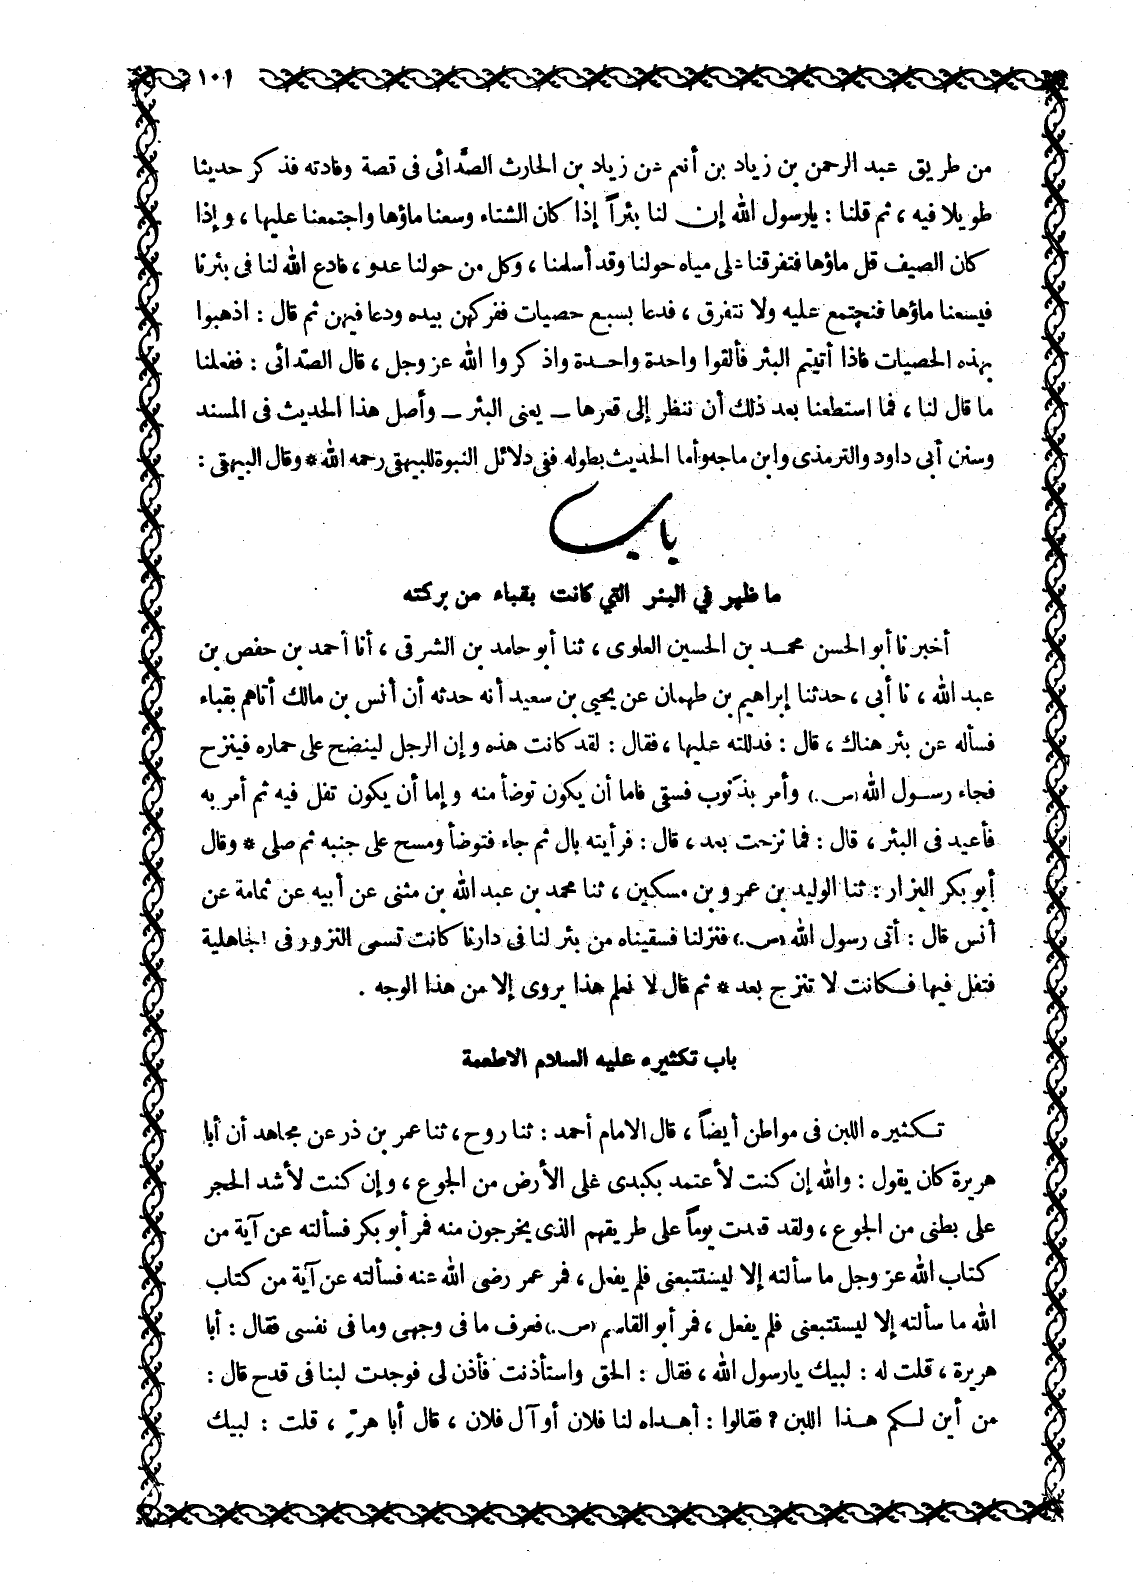 ١٠١
من طريق عبد الرحمن بن زياد بن أنعم عن زياد بن الحارث الصُّدائى فى قصة وفادته فذكر حديثا
طويلا فيه ، ثم قلنا : يارسول الله إن لنا بئراً إذا كان الشتاء وسعنا ماؤها واجتمعنا عليها ، وإذا
كان الصيف قل ماؤها فتفرقنا على مياه حولنا وقد أسلمنا ، وكل من حولنا عدو ، فادع الله لنا فى بئرنا
فيسعنا ماؤها فنجتمع عليه ولا نتفرق ، فدعا بسبع حصيات ففركهن بيده ودعا فيهن ثم قال : اذهبوا
بهذه الحصيات فاذا أتيتم البئر فألقوا واحدة واحدة واذكروا الله عز وجل ، قال الصّدائى : ففعلنا
ما قال لنا ، فما استطعنا بعد ذلك أن ننظر إلى قعرها ــ يعنى البئر ــ وأصل هذا الحديث فى المسند
وسنن أبى داود والترمذى وابن ماجه وأما الحديث بطوله ففى دلائل النبوة للبيهقى رحمه الله * وقال البيهقى :
باب
ما ظهر في البئر التي كانت بقباء من بركته
أخبرنا أبو الحسن محمد بن الحسين العلوى ، ثنا أبو حامد بن الشرقى ، أنا أحمد بن حفص بن
عبد الله ، نا أبى ، حدثنا إبراهيم بن طهمان عن يحيى بن سعيد أنه حدثه أن أنس بن مالك أتاهم بقباء
فسأله عن بئر هناك ، قال : فدللته عليها ، فقال : لقد كانت هذه وإن الرجل لينضح على حماره فينزح
فجاء رسول الله (س.) وأمر بذنوب فسقى فاما أن يكون توضأ منه وإما أن يكون تفل فيه ثم أمر به
فأعيد فى البئر ، قال : فما نزحت بعد ، قال : فرأيته بال ثم جاء فتوضأ ومسح على جنبه ثم صلى * وقال
أبو بكر البزار : ثنا الوليد بن عمرو بن مسكين ، ثنا محمد بن عبد الله بن مثنى عن أبيه عن ثمامة عن
أنس قال : أتى رسول الله (س.) فنزلنا فسقيناه من بئر لنا فى دارنا كانت تسمى النزور فى الجاهلية
فتفل فيها فكانت لا تنزح بعد * ثم قال لا نعلم هذا يروى إلا من هذا الوجه .
باب تكثيره عليه السلام الاطعمة
تكثيره اللبن فى مواطن أيضاً ، قال الامام أحمد : ثنا روح ، ثنا عمر بن ذر عن مجاهد أن أبا
هريرة كان يقول : والله إن كنت لأعتمد بكبدى على الأرض من الجوع ، وإن كنت لأشد الحجر
على بطنى من الجوع ، ولقد قعدت يوماً على طريقهم الذى يخرجون منه فمر أبو بكر فسألته عن آية من
كتاب الله عز وجل ما سألته إلا ليستتبعنى فلم يفعل ، فمر عمر رضى الله عنه فسألته عن آية من كتاب
الله ما سألته إلا ليستتبعنى فلم يفعل ، فمر أبو القاسم (س.) فعرف ما فى وجهى وما فى نفسى فقال : أبا
هريرة ، قلت له : لبيك يارسول الله ، فقال : الحق واستأذنت فأذن لى فوجدت لبنا فى قدح قال :
من أين لكم هذا اللبن ؟ فقالوا : أهداه لنا فلان أو آل فلان ، قال أبا هرٍّ ، قلت : لبيك